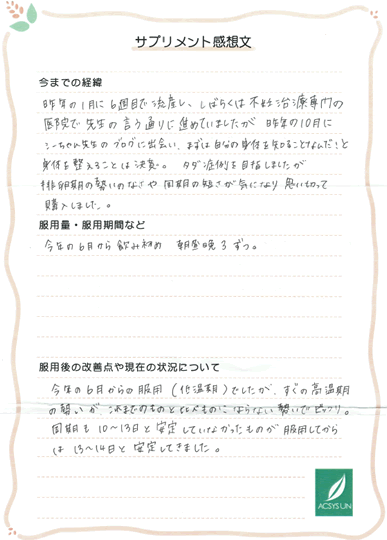 サプリメント感想文
今までの経緯
昨年の1月に6週目で流産し、しばらくは不妊治療専門の
医院で先生の言う通りに進めていましたが 昨年の10月に
シーちゃん先生のブログに出会い、まずは自分の身体を知ることなんだ!と
身体を整えることは決意。 タダ症例を目指しましたが
排卵期の勢いのなさや 周期の短さが気になり 思いきって
購入しました。
服用量・服用期間など
今年の6月から飲み初め 朝昼晩3ずつ。
服用後の改善点や現在の状況について
今年の6月からの服用 (低温期)でしたが、すぐの高温期
の勢いが、これまでのものと比べものにならない勢いでビックリ。
周期も10〜13日と安定していなかったものが服用してから
は 13〜14日と安定してきました。
ACSYSUN